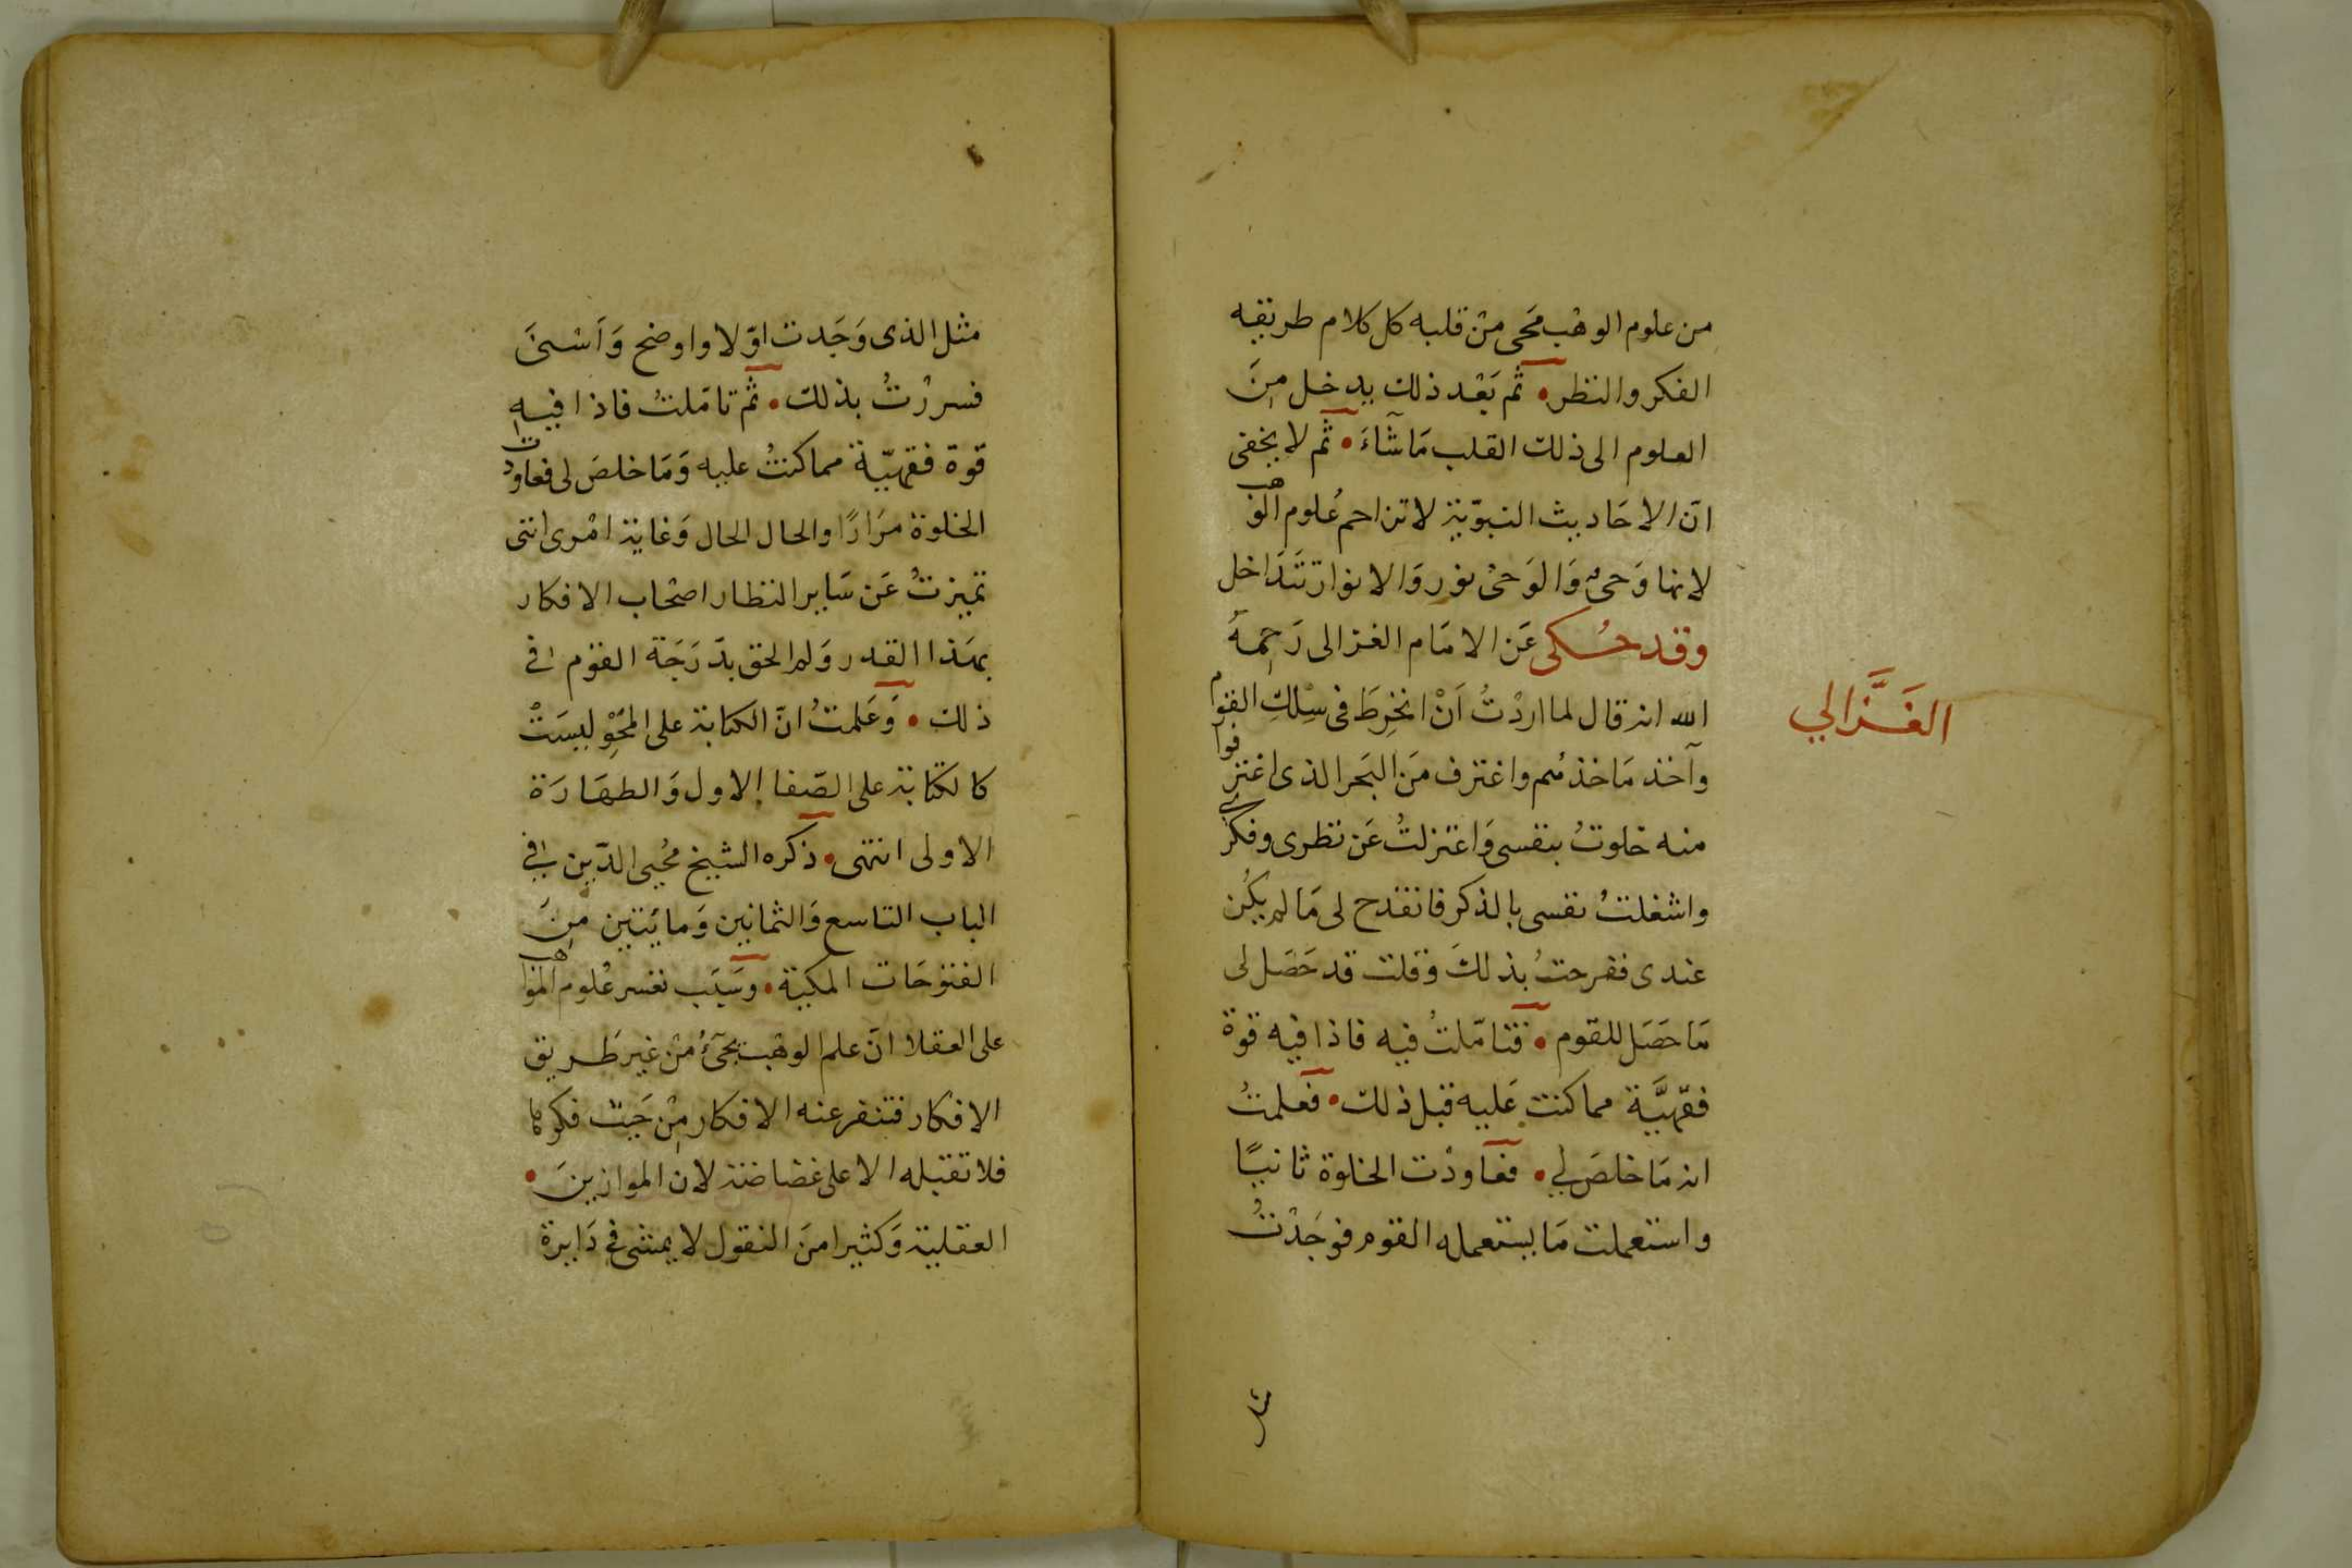 من علوم الوهْب مَحى منْ قلبه كل كلام طريقه
الفكر والنظر • ثم بَعْد ذلك يدخل مِنَ
العلوم الى ذلك القلب مَا شآءَ • ثم لا يخفى
انّ الاحَاديث النبوّية لا تزاحم عُلوم الوهب
لانها وَحىٌ وَالوَحىْ نور وَالانوار تتَدَاخل
وقد حُكى عَن الامَام الغزالى رَحِمهُ
الغَزَّالي
الله انه قال لما اردْتُ اَنْ انخرِطَ فى سِلكِ القوم
وآخذ مَاخذهم واغترف مَن البَحر الذى اغترفوا
منه خلوتُ بنفسى وَاعتزلتُ عَن نظرى وفكرى
واشغلتُ نفسى بالذكر فانقدح لى مَا لم يكُن
عندى ففرحتُ بذلكَ وقلت قد حَصَل لى
مَا حَصَل للقوم • فتامّلتُ فيه فاذا فيه قوة
فقهيَّة مما كنت عَليه قبل ذلك • فعلمتُ
انه مَا خلصَ لي • فعَاودْت الخلوة ثانيًا
واستعملت مَا يستعمله القوم فوجَدْتُ
مثل
مثل الذى وَجَدت اوّلا واوضح وَاَسْنىَ
فسررْتُ بذلك • ثم تامّلتُ فاذا فيهِ
قوة فقهيّة مما كنتُ عليه وَمَا خلصَ لى فعاودت
الخلوة مرَارًا والحال الحال وَغاية امْرى اننى
تميزتُ عَن سَاير النظار اصْحاب الافكار
بهَذا القدر وَلم الحق بدَرَجَة القوم فى
ذلك • وَعَلمتُ انّ الكتابة على المَحْوِ ليسَتْ
كالكتابة على الصّفا الاول وَالطهَارَة
الاولى انتهى • ذكره الشيخ مُحيى الدّين فى
الباب التاسع وَالثمانين وَمايَتين مِنَ
الفتوحَات المكية • وسَبَب نفر عُلوم المواهب
على العقلا انّ علم الوهْب يجىٓءُ منْ غير طَريق
الافكار فتنفر عنه الافكار مِنْ حَيث فكرها
فلا تقبله الا على غضاضة لان الموازينَ •
العقلية وَكثيرا منَ النقول لا يمشى فى دَايرة